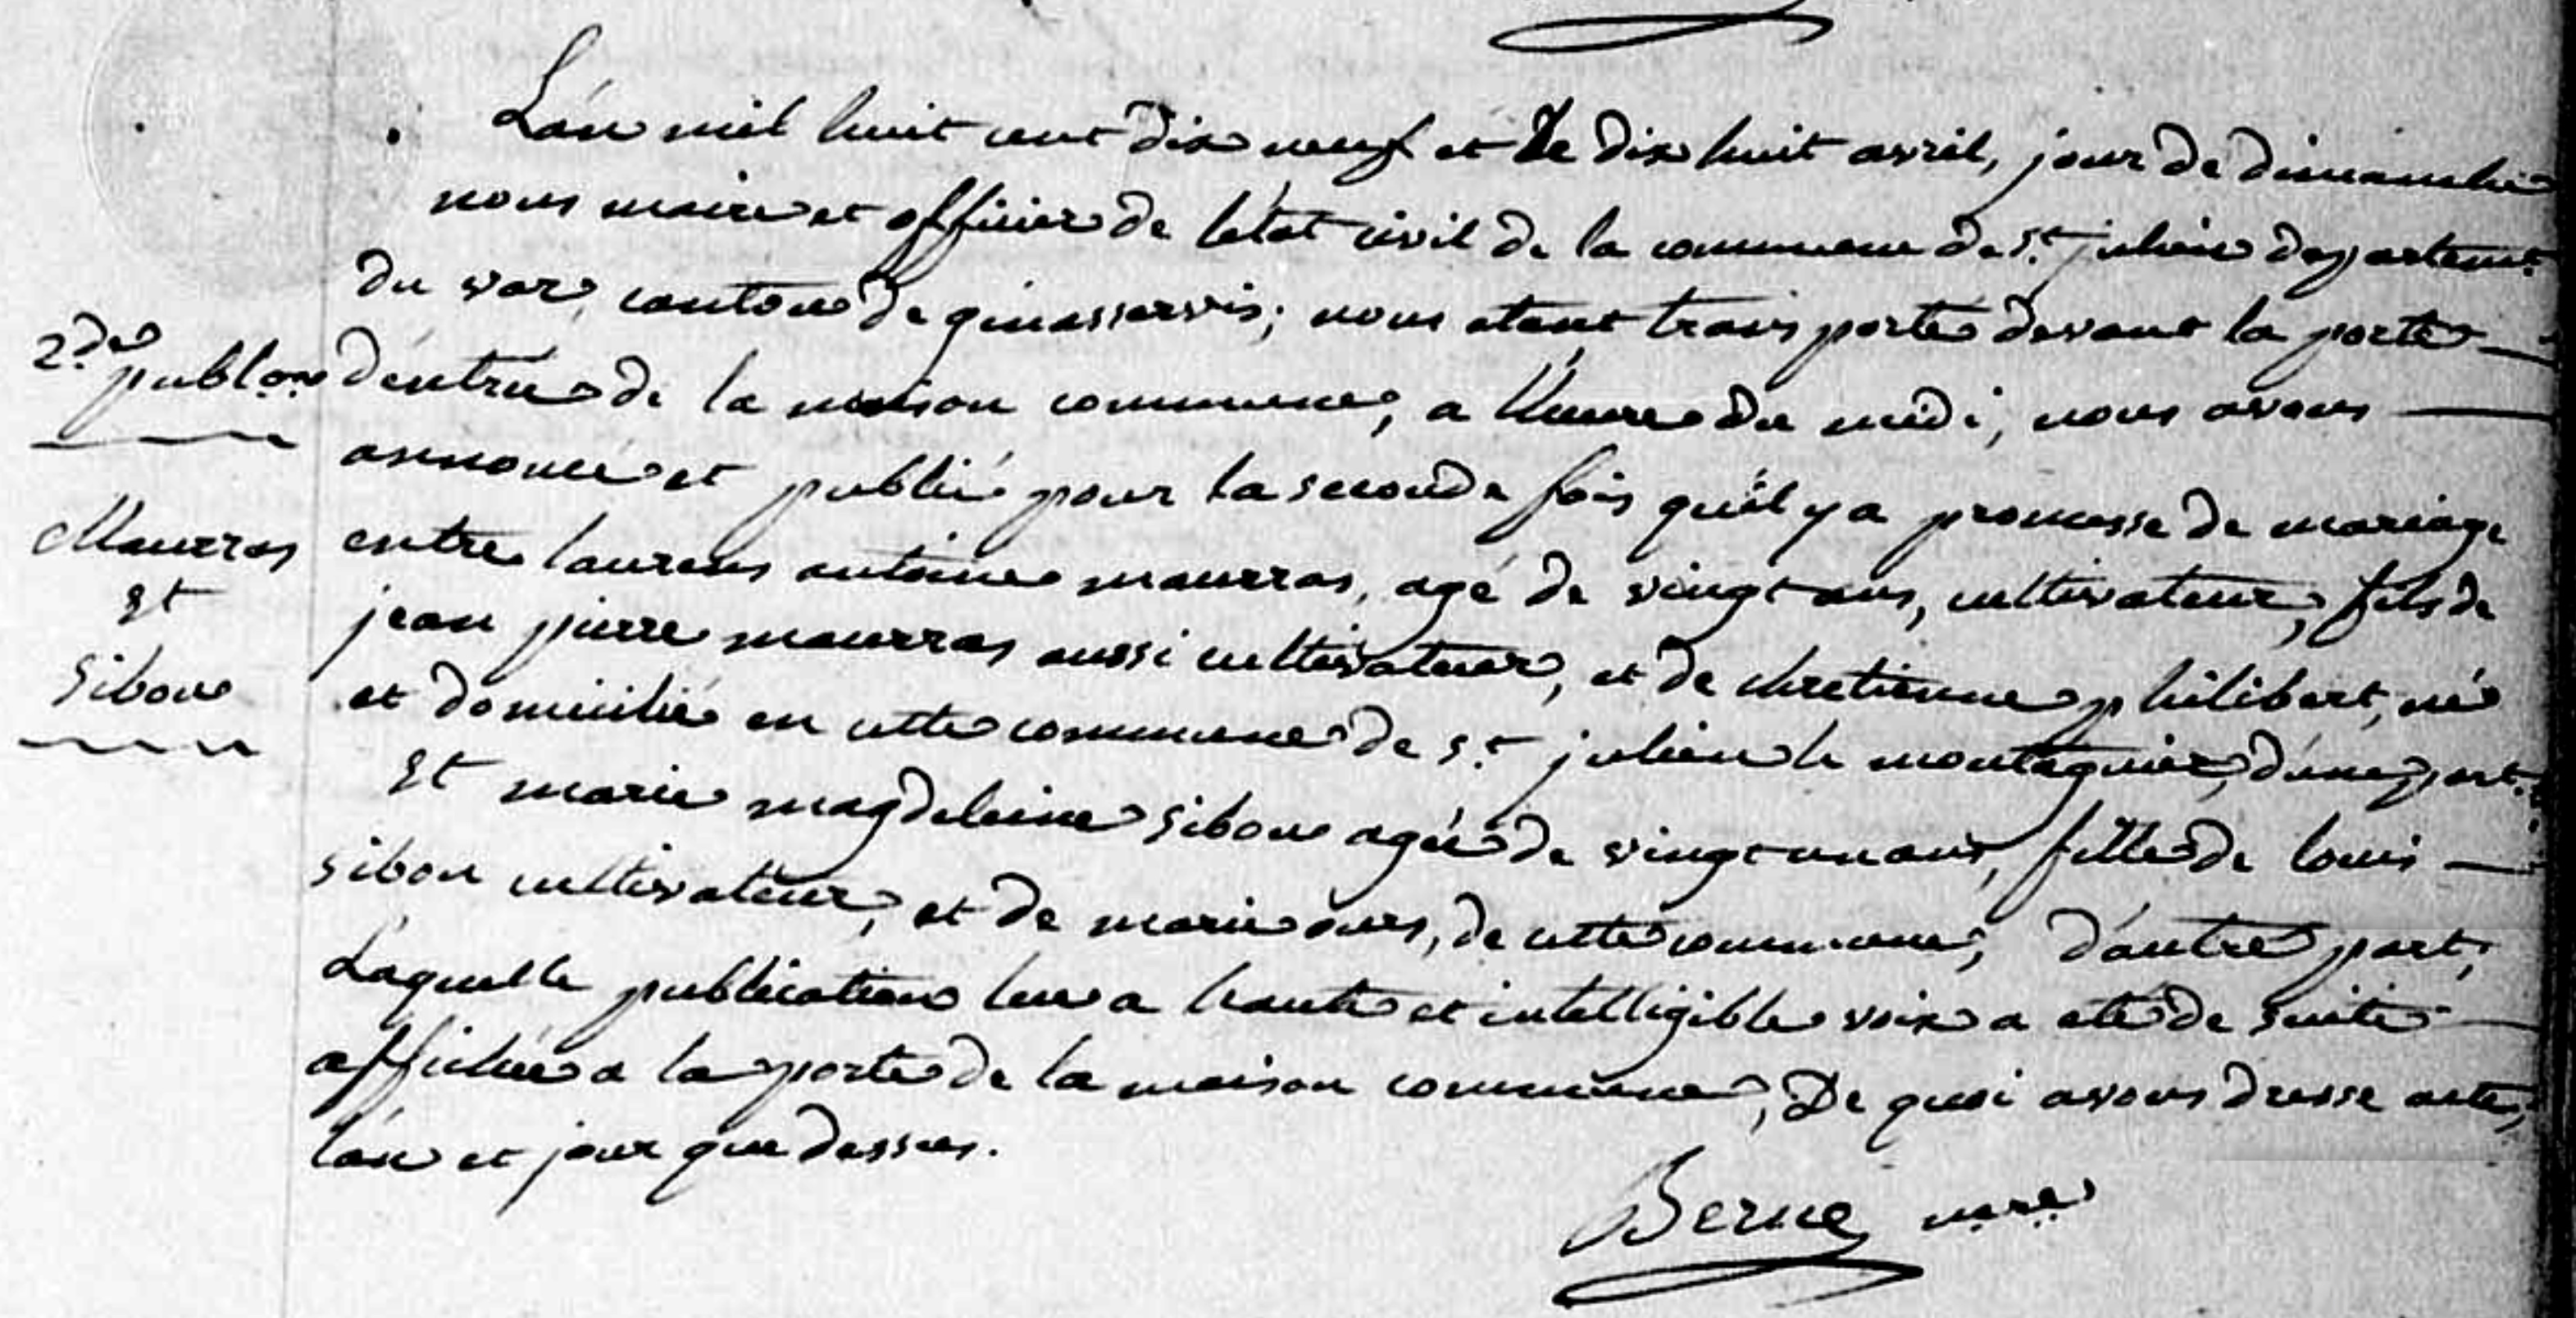 L'an mil huit cent dix neuf et Le dix huit avril, jour de dimanche
nous maire et officier de l'état civil de la commune de St. julien departemt.
du var, canton de ginasservis; nous etant transporté devant la porte
2de. publon.
d'entrée de la maison commune, a l'heure du midi, nous avons
annoncé et publié pour la seconde fois qu'il y a promesse de mariage
Maurras
et
Sibon
entre laurens antoine maurras, agé de vingt ans, cultivateur, fils de
jean pierre maurras aussi cultivateur, et de chretienne philibert, né
et domicilié en cette commune de st. julien le montagnier, d'une part.
Et marie magdeleine Sibon agée de vingt un ans, fille de louis
sibon cultivateur, et de marie, de cette commune, d'autre part,
Laquelle publication lue a haute et intelligible voix a eté de suite
affichée a la porte de la maison commune, De quoi avons dressé acte,
l'an et jour que dessus.
Berne mre